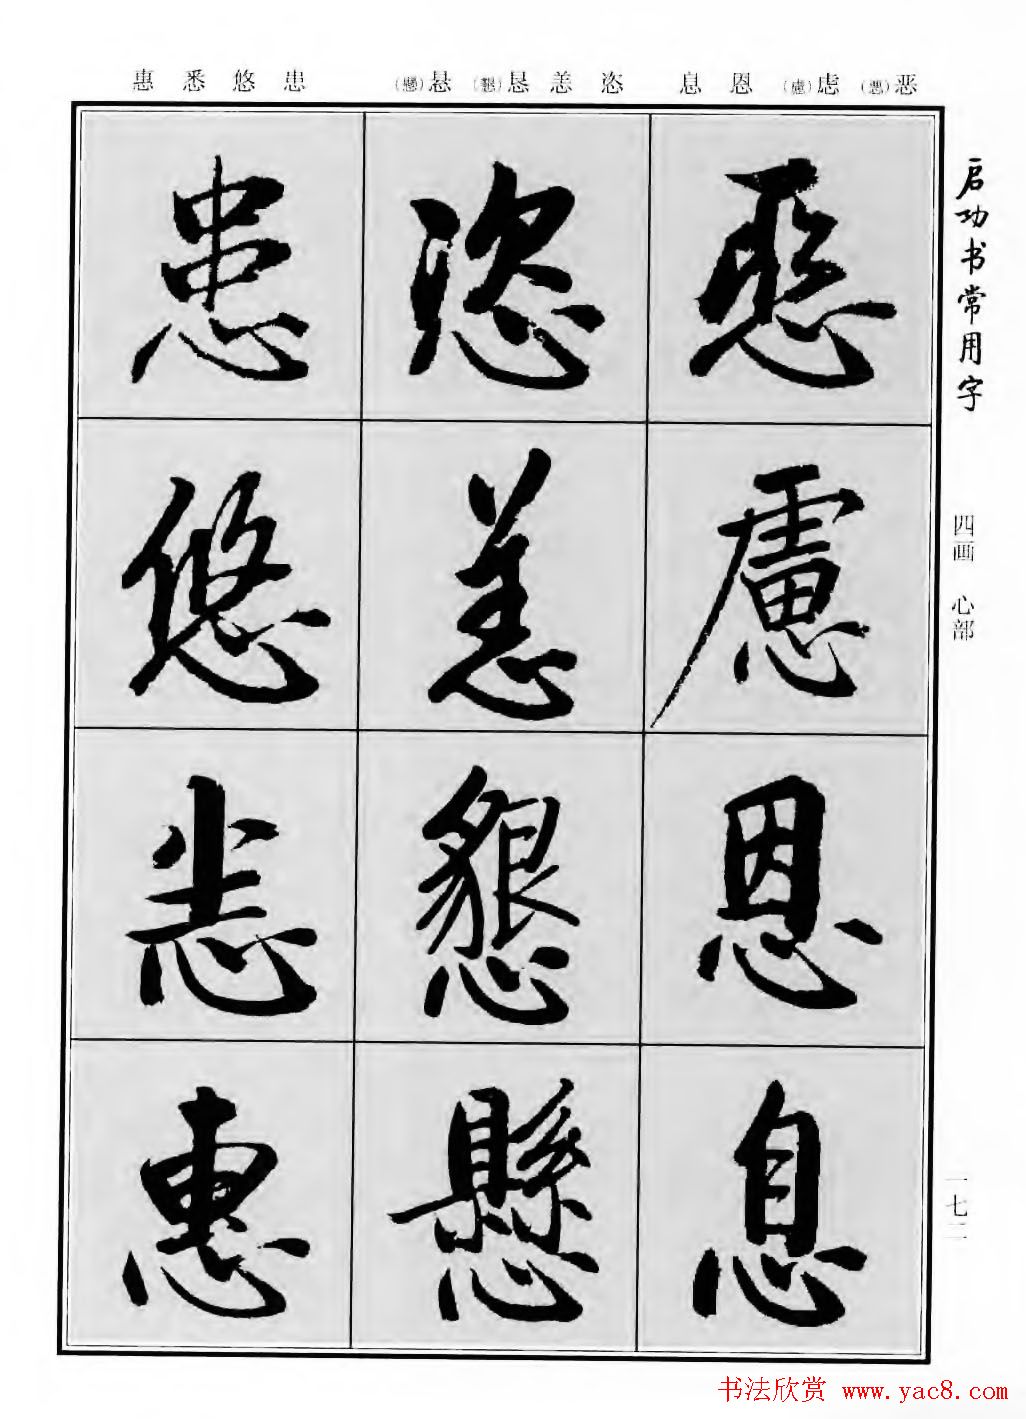 惠 悉 悠 患 (懸)悬 (懇)恳 恙 恣 息 恩 (慮)虑 (惡)恶
启功书常用字
四画 心部
一七二
恶
慮
恩
息
恣
恙
懇
懸
患
悠
悉
惠
书法欣赏 www.yac8.com